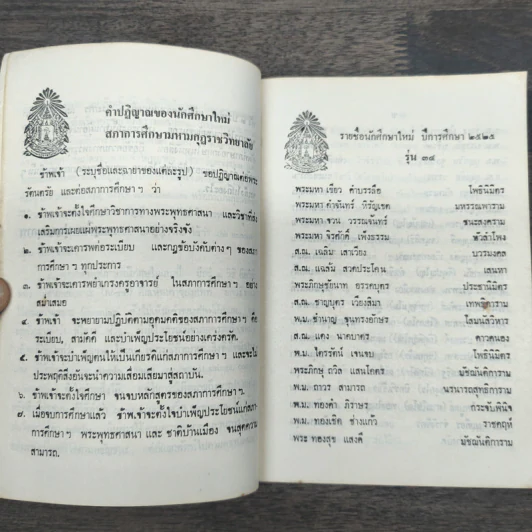 คำปฏิญาณของนักศึกษาใหม่
สภาการศึกษามหามกุฏราชวิทยาลัย
ข้าพเจ้า (ระบุชื่อและฉายาของแต่ละรูป) ขอปฏิญาณต่อพระ
รัตนตรัย และต่อสภาการศึกษา ฯ ว่า
๑. ข้าพเจ้าจะตั้งใจศึกษาวิชาการทางพระพุทธศาสนา และวิชาที่ส่ง
เสริมการเผยแผ่พระพุทธศาสนาอย่างจริงจัง
๒. ข้าพเจ้าจะเคารพต่อระเบียบ และกฎข้อบังคับต่าง ๆ ของสภา
การศึกษา ฯ ทุกประการ
๓. ข้าพเจ้าจะเคารพยำเกรงครูอาจารย์ ในสภาการศึกษา ฯ อย่าง
สม่ำเสมอ
๔. ข้าพเจ้า จะพยายามปฏิบัติตามอุดมคติของสภาการศึกษา ฯ คือ
ระเบียบ, สามัคคี และบำเพ็ญประโยชน์อย่างเคร่งครัด.
๕. ข้าพเจ้าจะบำเพ็ญตนให้เป็นเกียรติแก่สภาการศึกษา ฯ และจะไม่
ประพฤติสิ่งอันจะนำความเสื่อมเสียมาสู่สถาบัน.
๖. ข้าพเจ้า จะตั้งใจศึกษา จนจบหลักสูตรของสภาการศึกษา ฯ
๗. เมื่อจบการศึกษาแล้ว ข้าพเจ้าจะตั้งใจบำเพ็ญประโยชน์แก่สภา
การศึกษา ฯ พระพุทธศาสนา และ ชาติบ้านเมือง จนสุดความ
สามารถ.
รายชื่อนักศึกษาใหม่ ปีการศึกษา ๒๕๒๕
รุ่น ๓๔
พระมหา เขียว คำบรรลือ โพธินิมิตร
พระมหา คำพันทร์ หิรัญเขต มหรรณพาราม
พระมหา ชวน วรรณจันทร์ ชนะสงคราม
พระมหา จิรศักดิ์ เพ็งธรรม หัวลำโพง
ส.ณ. เฉลิม เสาเวียง บวรมงคล
ส.ณ. เฉลิม สวดประโคน เสนหา
พระภิกษุชัยนาท อรรคบุตร ประชานิมิตร
ส.ณ. ชาญบุตร เวียงสีมา เทพธิดาราม
พ.ม. ชำนาญ ขุนทรงอักษร โสมนัสวิหาร
ส.ณ. แดง นาคบาตร ดาวคนอง
พ.ม. ไตรรัตน์ เจนจบ โพธินิมิตร
พระภิกษุ ถวิล แสนโคตร มัชฌันติการาม
พ.ม. ถาวร สามารถ นรนารถสุทธิการาม
พ.ม. ทองคำ ภิรายร กระจับพินิจ
พ.ม. ทองเชิด ช่างแก้ว ราชคฤห์
พระ ทองสุข แสงดี มัชฌันติการาม